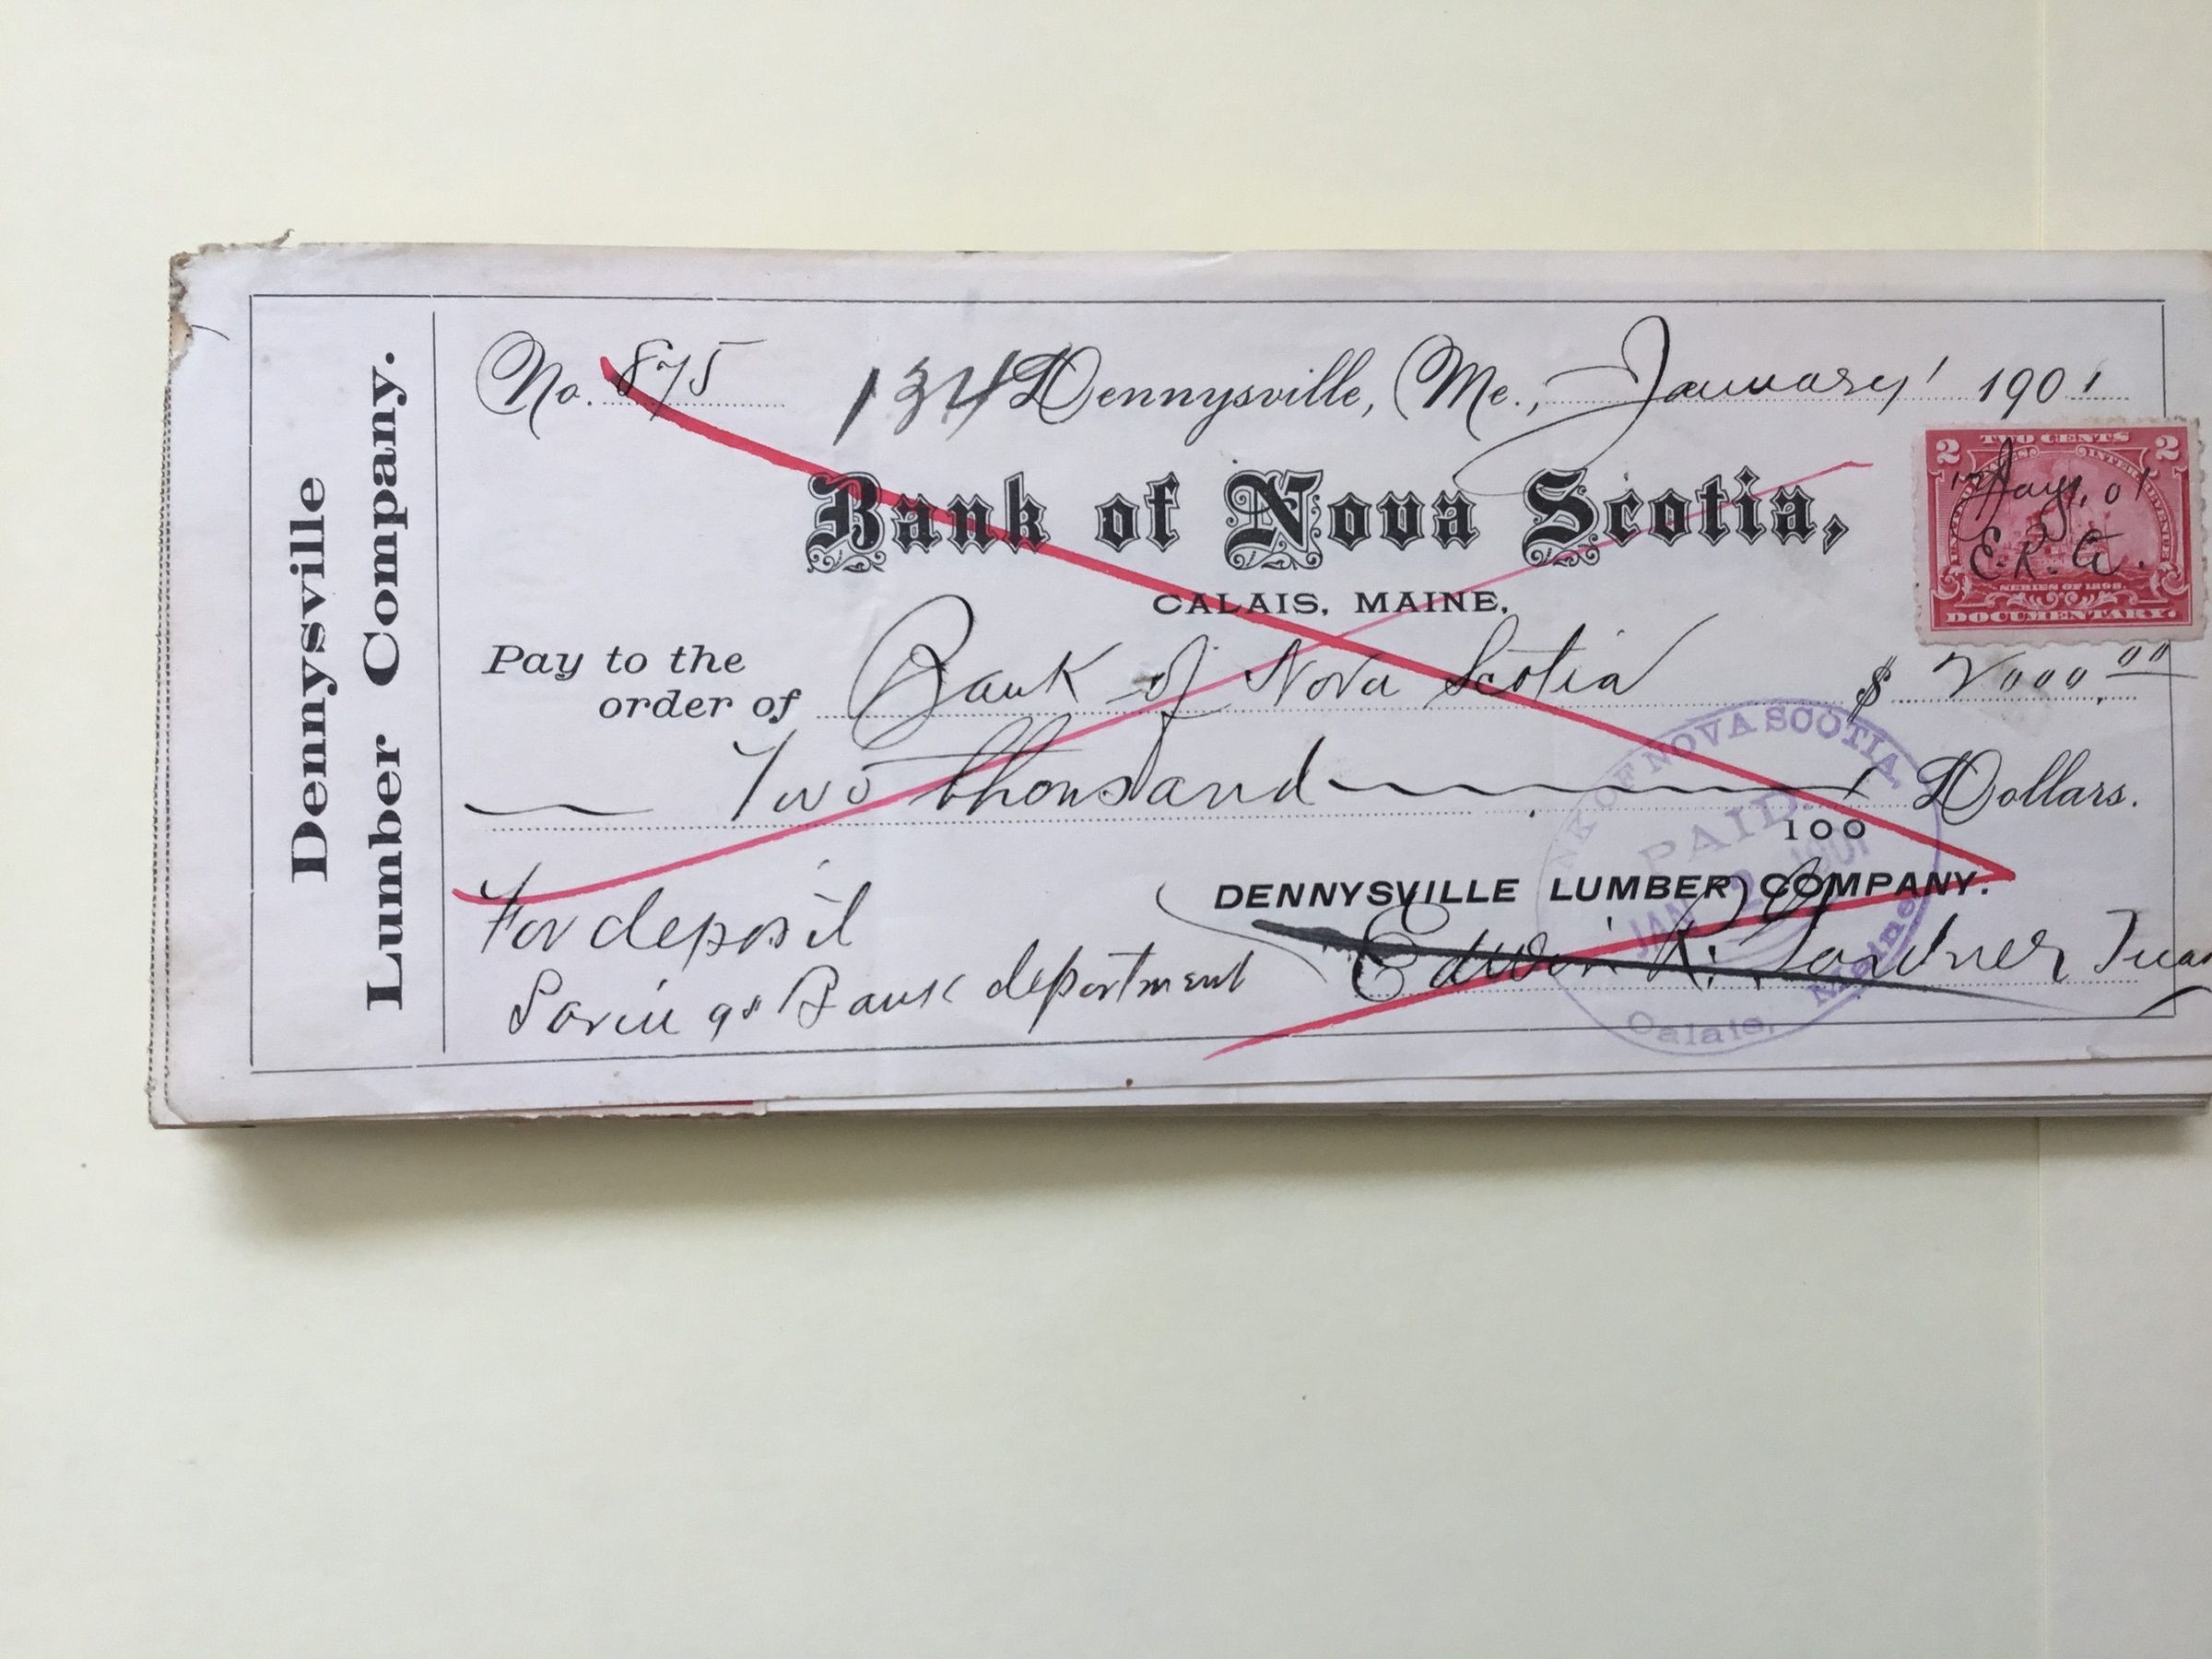 Dennysville
Lumber Company.
No. 875 134 Dennysville, Me., January 1 1901
Bank of Nova Scotia,
CALAIS, MAINE,
Pay to the
order of Bank of Nova Scotia $ 2000.00
Two thousand Dollars.
100
DENNYSVILLE LUMBER COMPANY.
For deposit
Savings Bank department
Edwin R. Gardner Treas
2 TWO CENTS 2
Jany 1, 01
E. R. G.
SERIES OF 1898
DOCUMENTARY.
BANK OF NOVA SCOTIA
PAID
JAN 2 1901
Calais, Maine